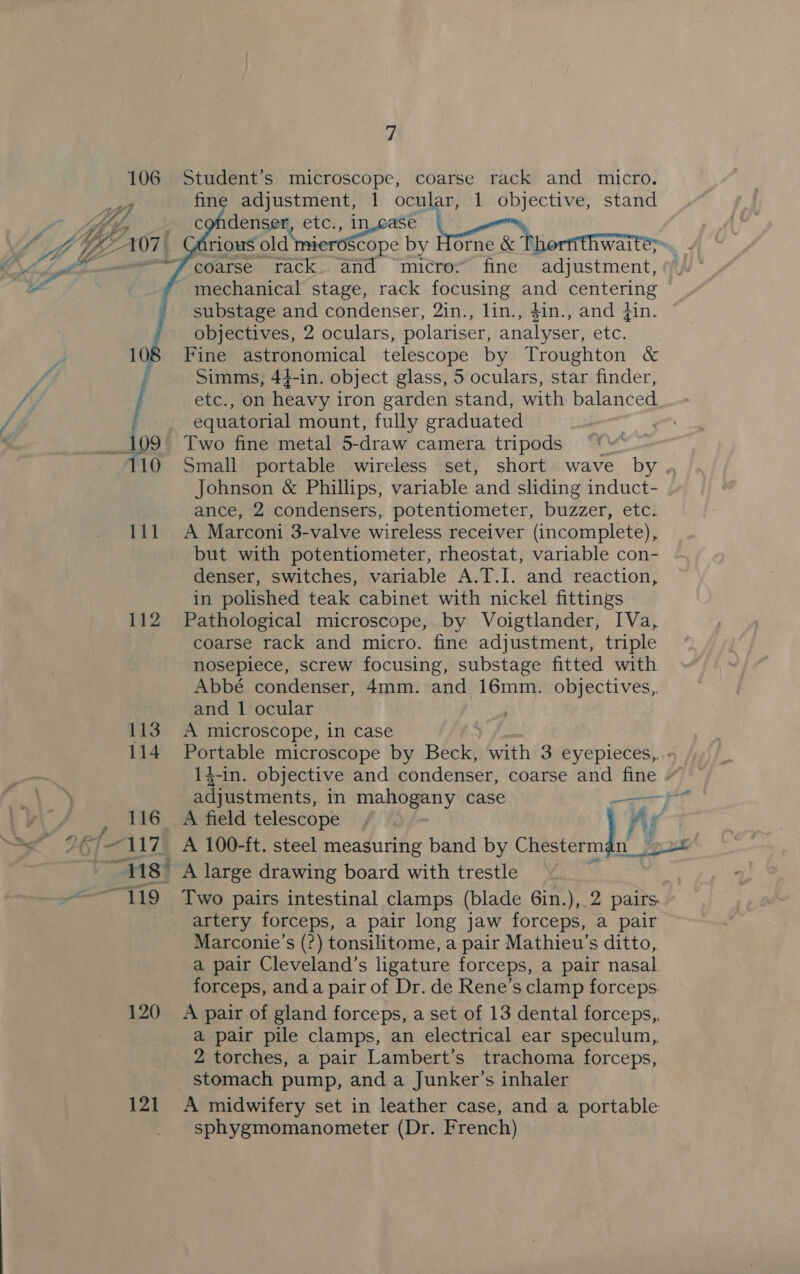 7
106 Student's microscope, coarse rack and micro.
fine adjustment, 1 ocular, 1 objective, stand
condenser, etc., in case
107 Curious old microscope by Horne & Thornthwaite,
coarse rack and micro. fine adjustment,
mechanical stage, rack focusing and centering
substage and condenser, 2in., 1in., ½in., and ¼in.
objectives, 2 oculars, polariser, analyser, etc.
108 Fine astronomical telescope by Troughton &
Simms, 4¼-in. object glass, 5 oculars, star finder,
etc., on heavy iron garden stand, with balanced
equatorial mount, fully graduated
109 Two fine metal 5-draw camera tripods
110 Small portable wireless set, short wave by
Johnson & Phillips, variable and sliding induct-
ance, 2 condensers, potentiometer, buzzer, etc.
111 A Marconi 3-valve wireless receiver (incomplete),
but with potentiometer, rheostat, variable con-
denser, switches, variable A.T.I. and reaction,
in polished teak cabinet with nickel fittings
112 Pathological microscope, by Voigtlander, IVa,
coarse rack and micro. fine adjustment, triple
nosepiece, screw focusing, substage fitted with
Abbé condenser, 4mm. and 16mm. objectives,
and 1 ocular
113 A microscope, in case
114 Portable microscope by Beck, with 3 eyepieces,
1½-in. objective and condenser, coarse and fine
adjustments, in mahogany case
116 A field telescope
117 A 100-ft. steel measuring band by Chesterman
118 A large drawing board with trestle
119 Two pairs intestinal clamps (blade 6in.), 2 pairs
artery forceps, a pair long jaw forceps, a pair
Marconie's (?) tonsilitome, a pair Mathieu's ditto,
a pair Cleveland's ligature forceps, a pair nasal
forceps, and a pair of Dr. de Rene's clamp forceps
120 A pair of gland forceps, a set of 13 dental forceps,
a pair pile clamps, an electrical ear speculum,
2 torches, a pair Lambert's trachoma forceps,
stomach pump, and a Junker's inhaler
121 A midwifery set in leather case, and a portable
sphygmomanometer (Dr. French)